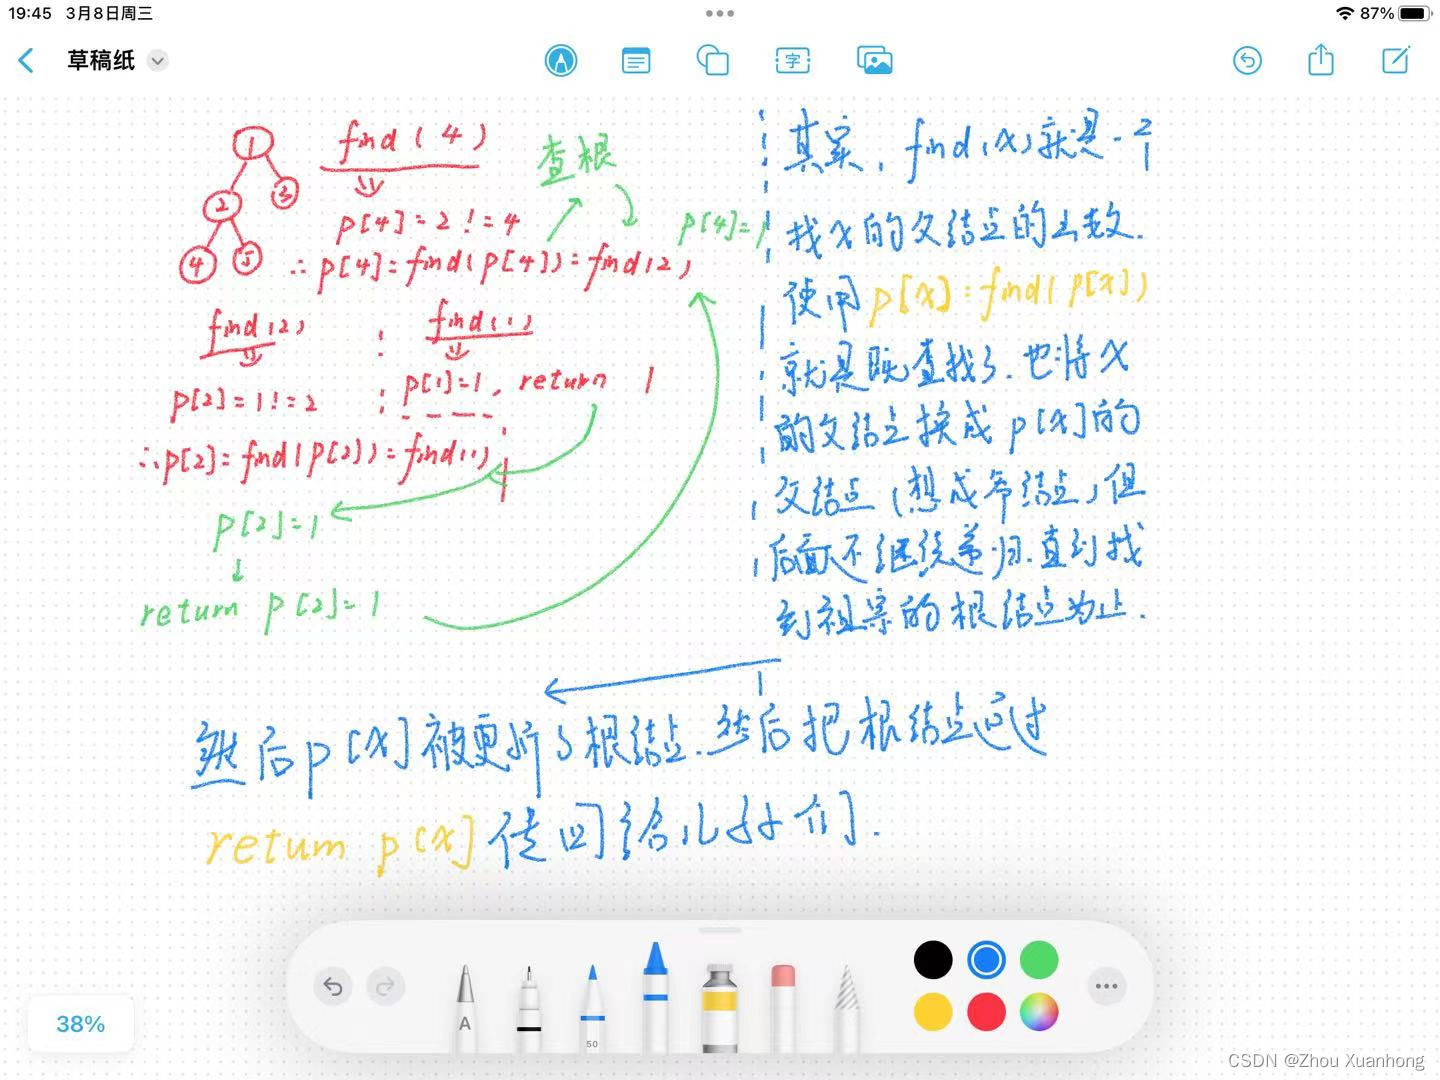 19:45 3月8日周三
87%
草稿纸
字
1
2
3
4
5
find(4)
查根
p[4]=2!=4
p[4]=1
∴p[4]=find(p[4])=find(2)
find(2)
find(1)
p[2]=1!=2
p[1]=1, return 1
∴p[2]=find(p[2])=find(1)
p[2]=1
return p[2]=1
其实, find(x)就是一个
找x的父结点的函数.
使用p[x]=find(p[x])
就是既查找了.也将x
的父结点换成p[x]的
父结点(想成爷结点)但
后面还继续递归.直到找
到祖宗的根结点为止.
然后p[x]被更新了根结点.然后把根结点通过
return p[x]传回给儿好们.
A
50
38%
CSDN @Zhou Xuanhong